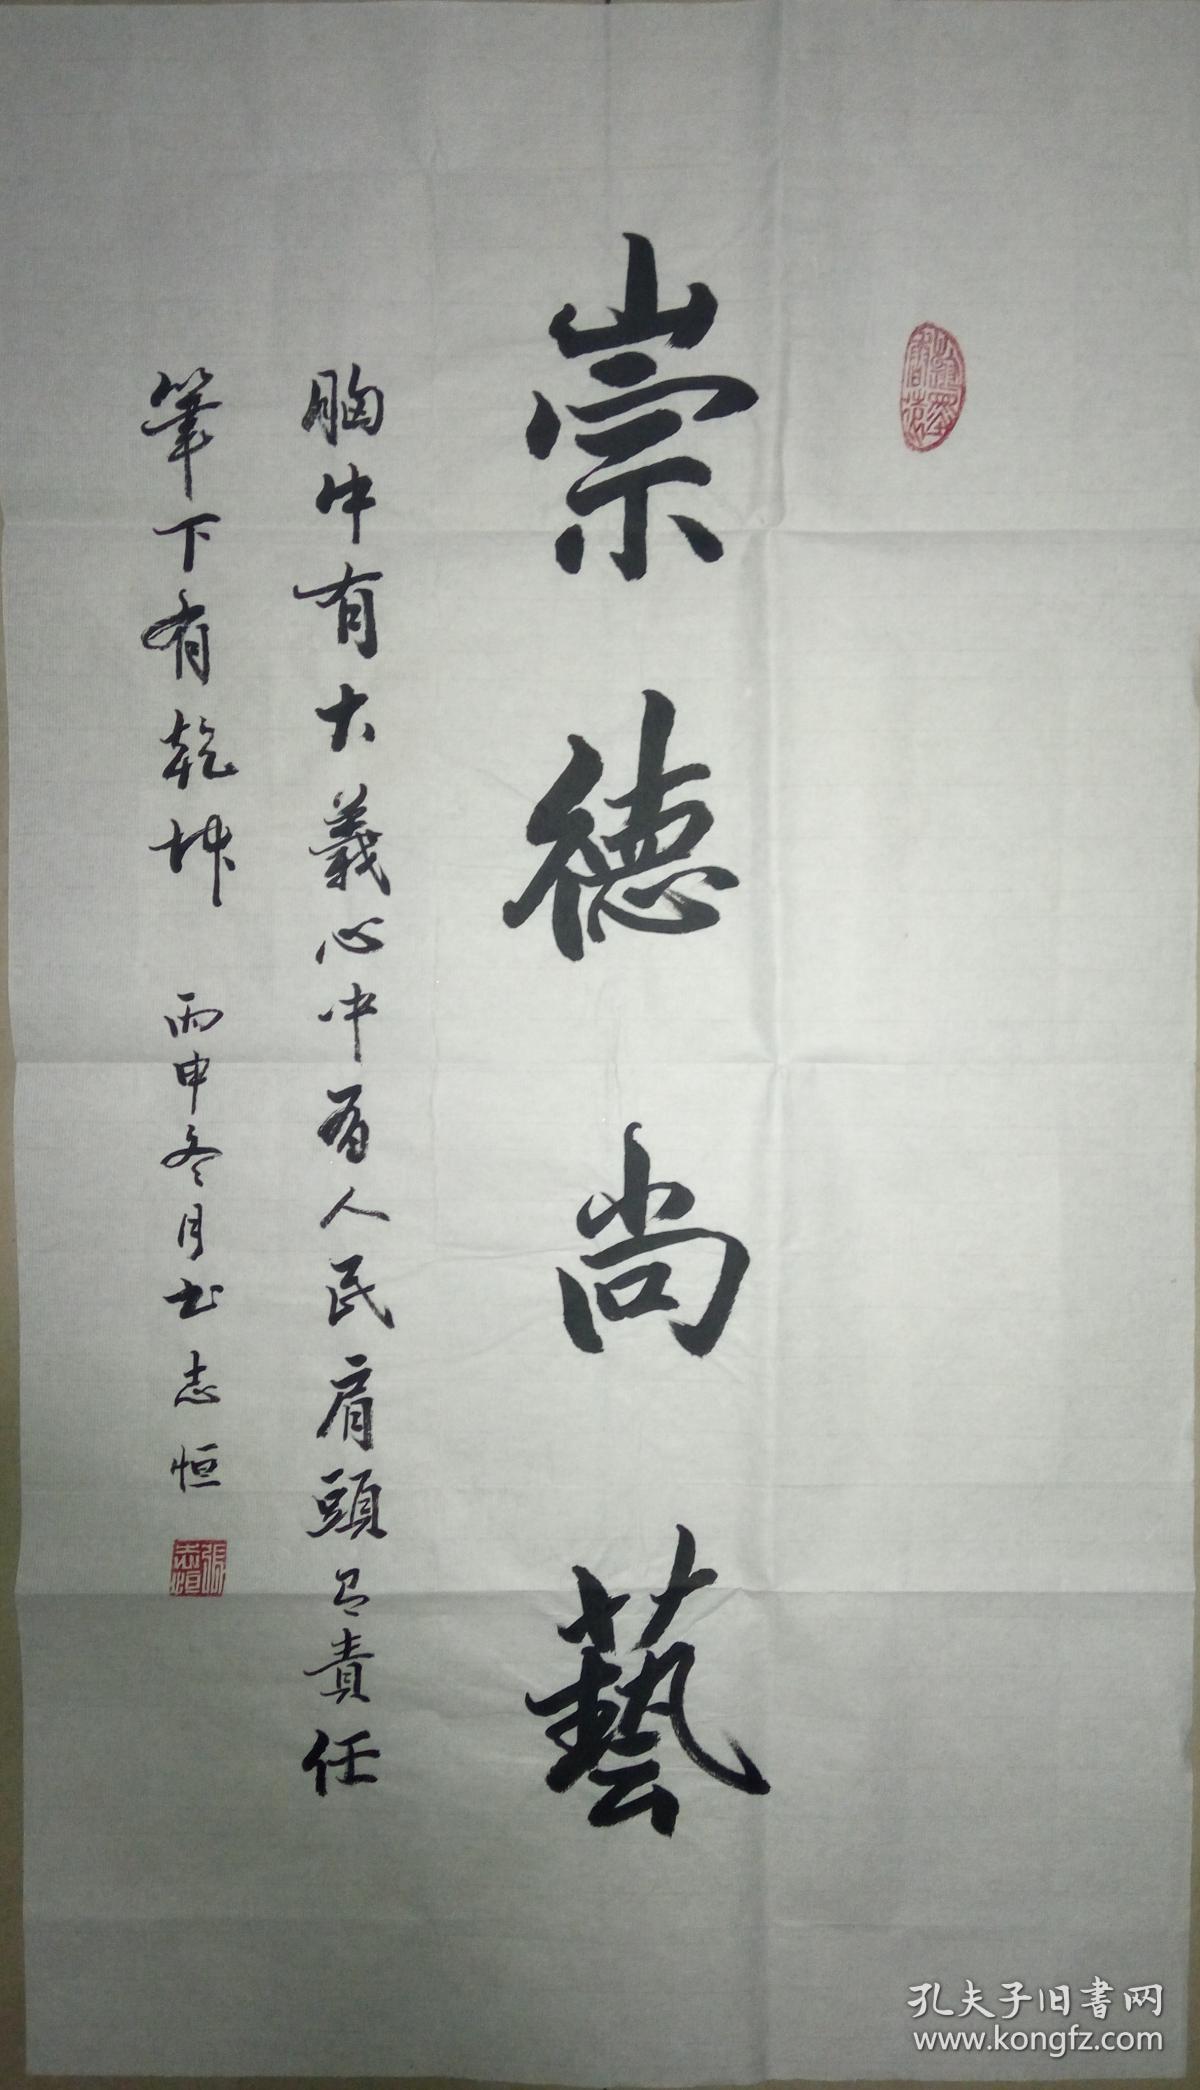 崇德尚藝
胸中有大義心中有人民肩頭有責任
筆下有乾坤 丙申冬月书志恒
張志恒
孔夫子旧書网
www.kongfz.com